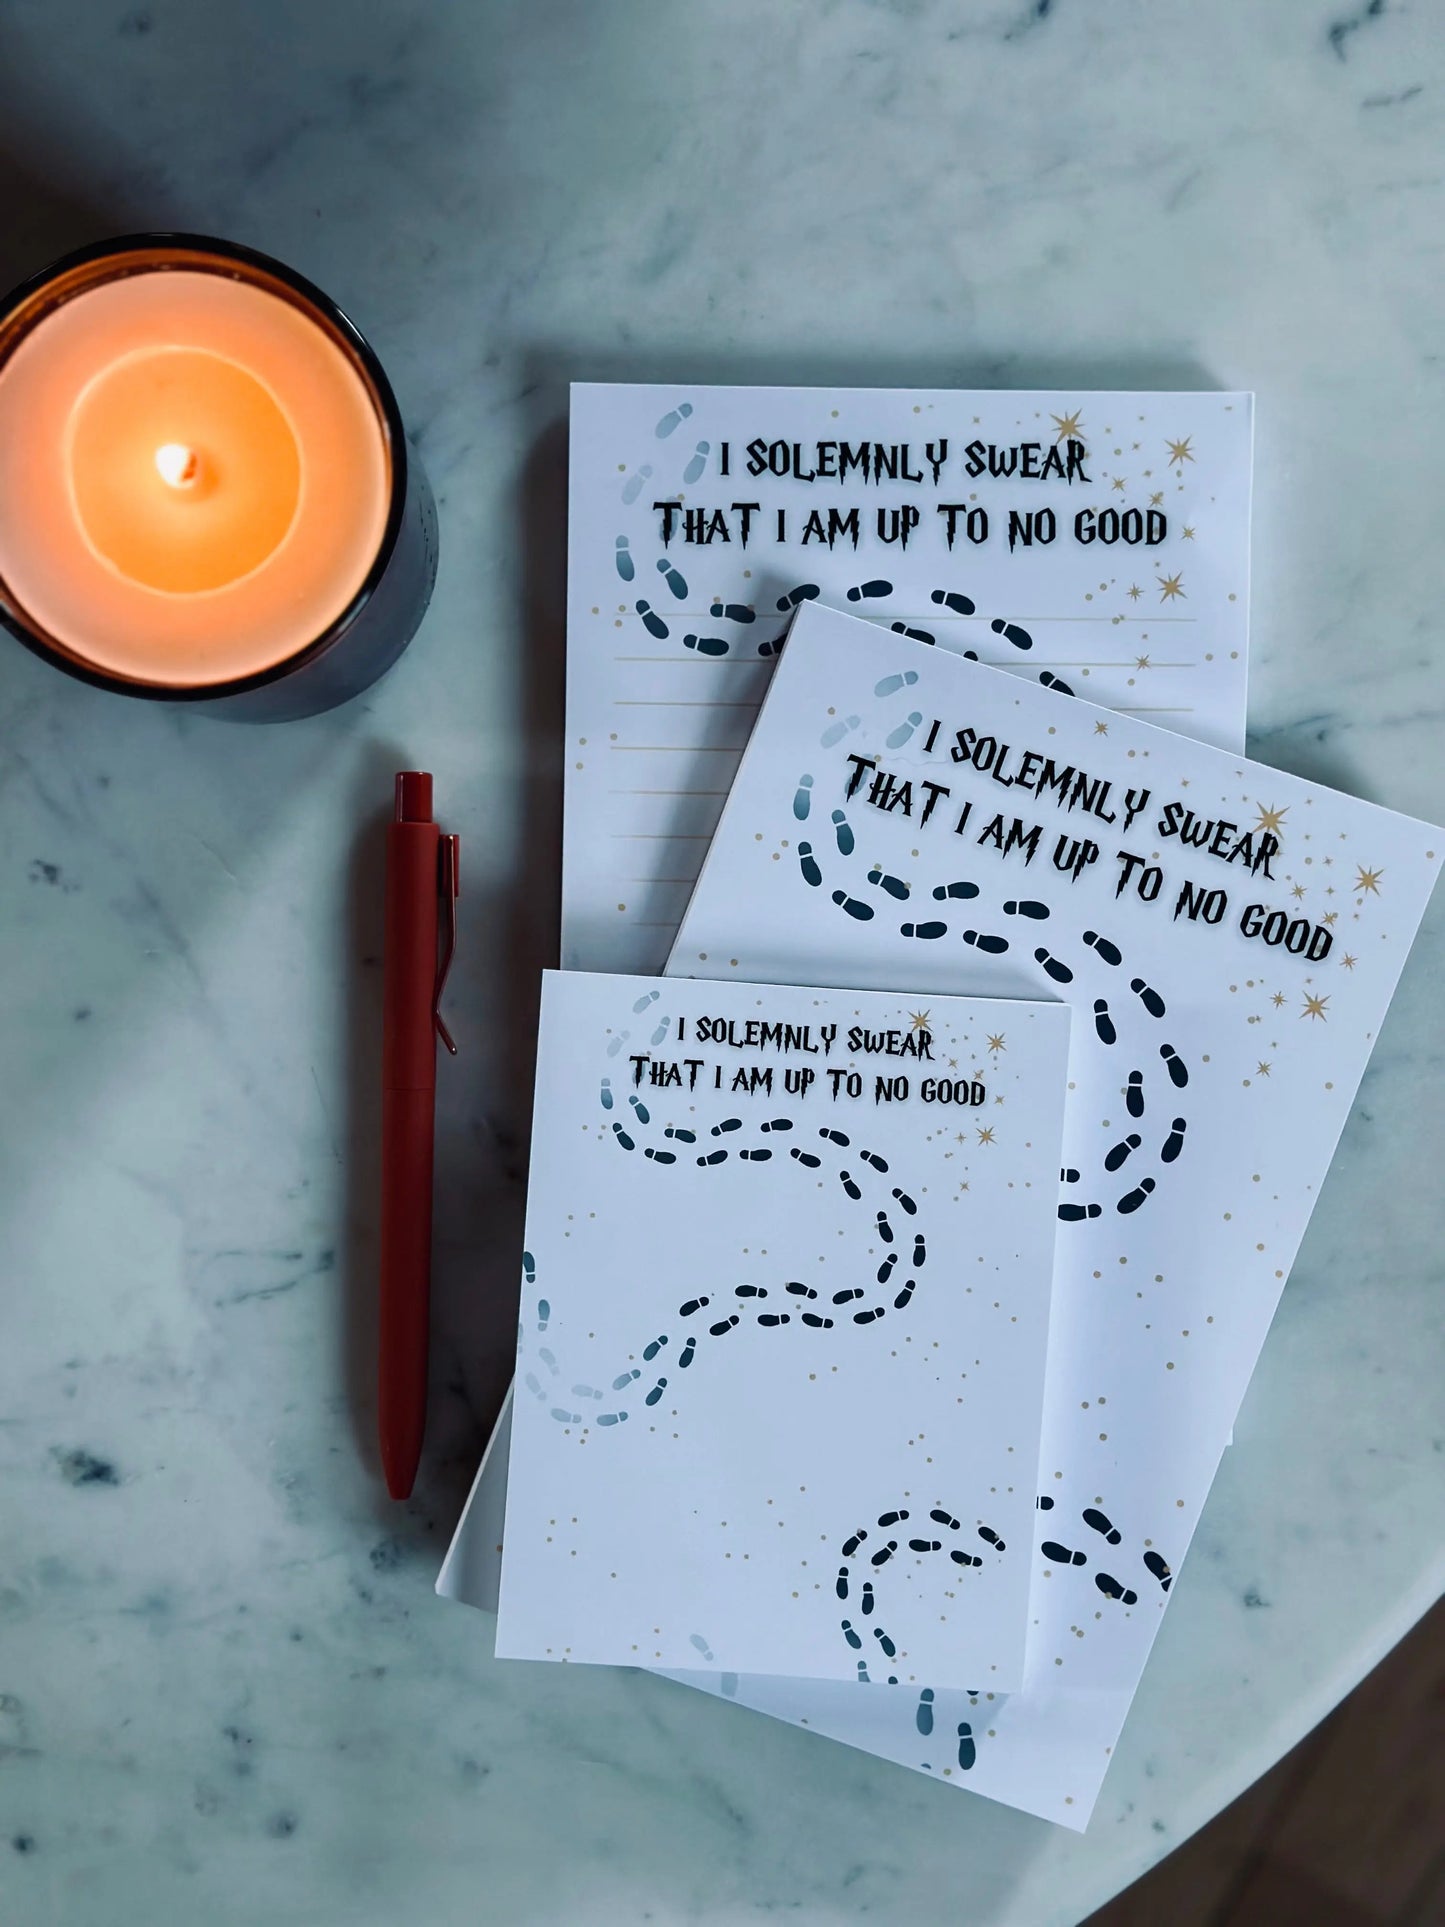 I SOLEMNLY SWEAR
THAT I AM UP TO NO GOOD
I SOLEMNLY SWEAR
THAT I AM UP TO NO GOOD
I SOLEMNLY SWEAR
THAT I AM UP TO NO GOOD